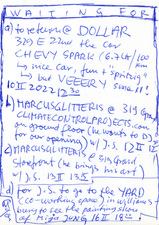 WAITING FOR
a) to return @ DOLLAR
329 E 22nd the car
CHEVY SPARK (6.7lt/100
nice car, fun + "spritzig"
but VEEERY small!
10 II 2022 12 30
b) MARCUSGLITTERIS @ 319 Grand
CLIMATECONTROLPROJECTS.com
on ground floor (he wants to DJ
for our opening) w/ J.S. 12 II
c) MARCUSGLITTERIS @ 319 Grand
storefront (he brings his art
w/ J.S. 13 II
d) for J.S. to go to the YARD
(co-working space) in williams
burg to see the painting show
of 16 II 18